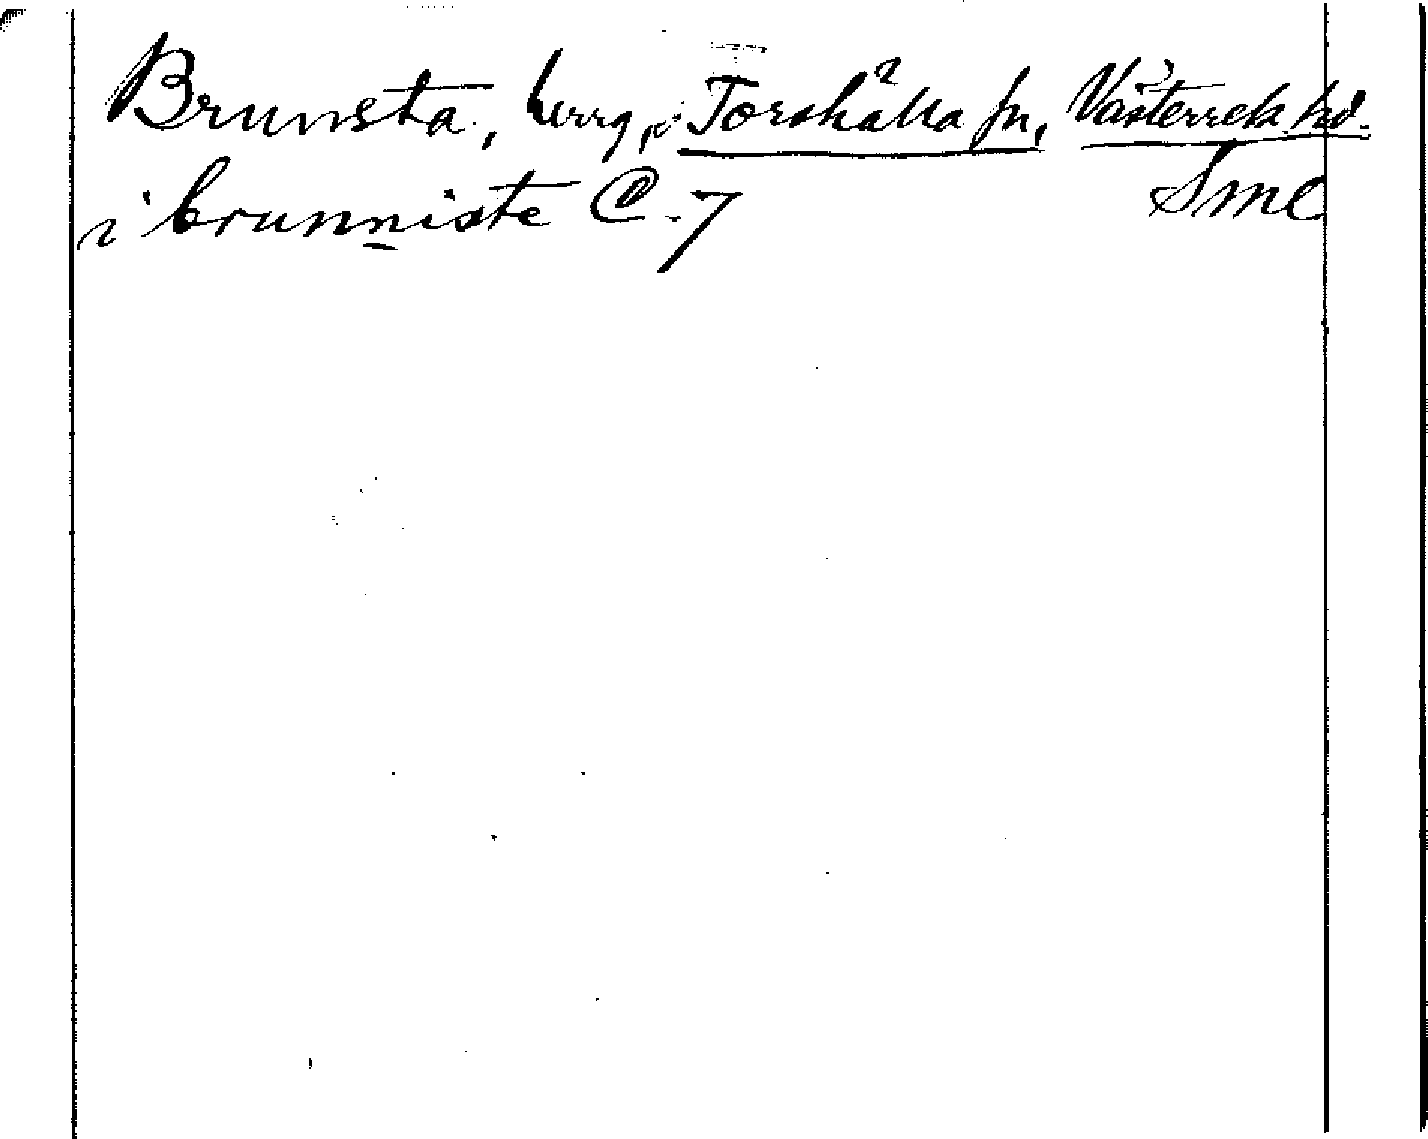 Brunsta, herrg, i Torshälla sn, Västerrek hd.
Sml
i brunniste C. 7